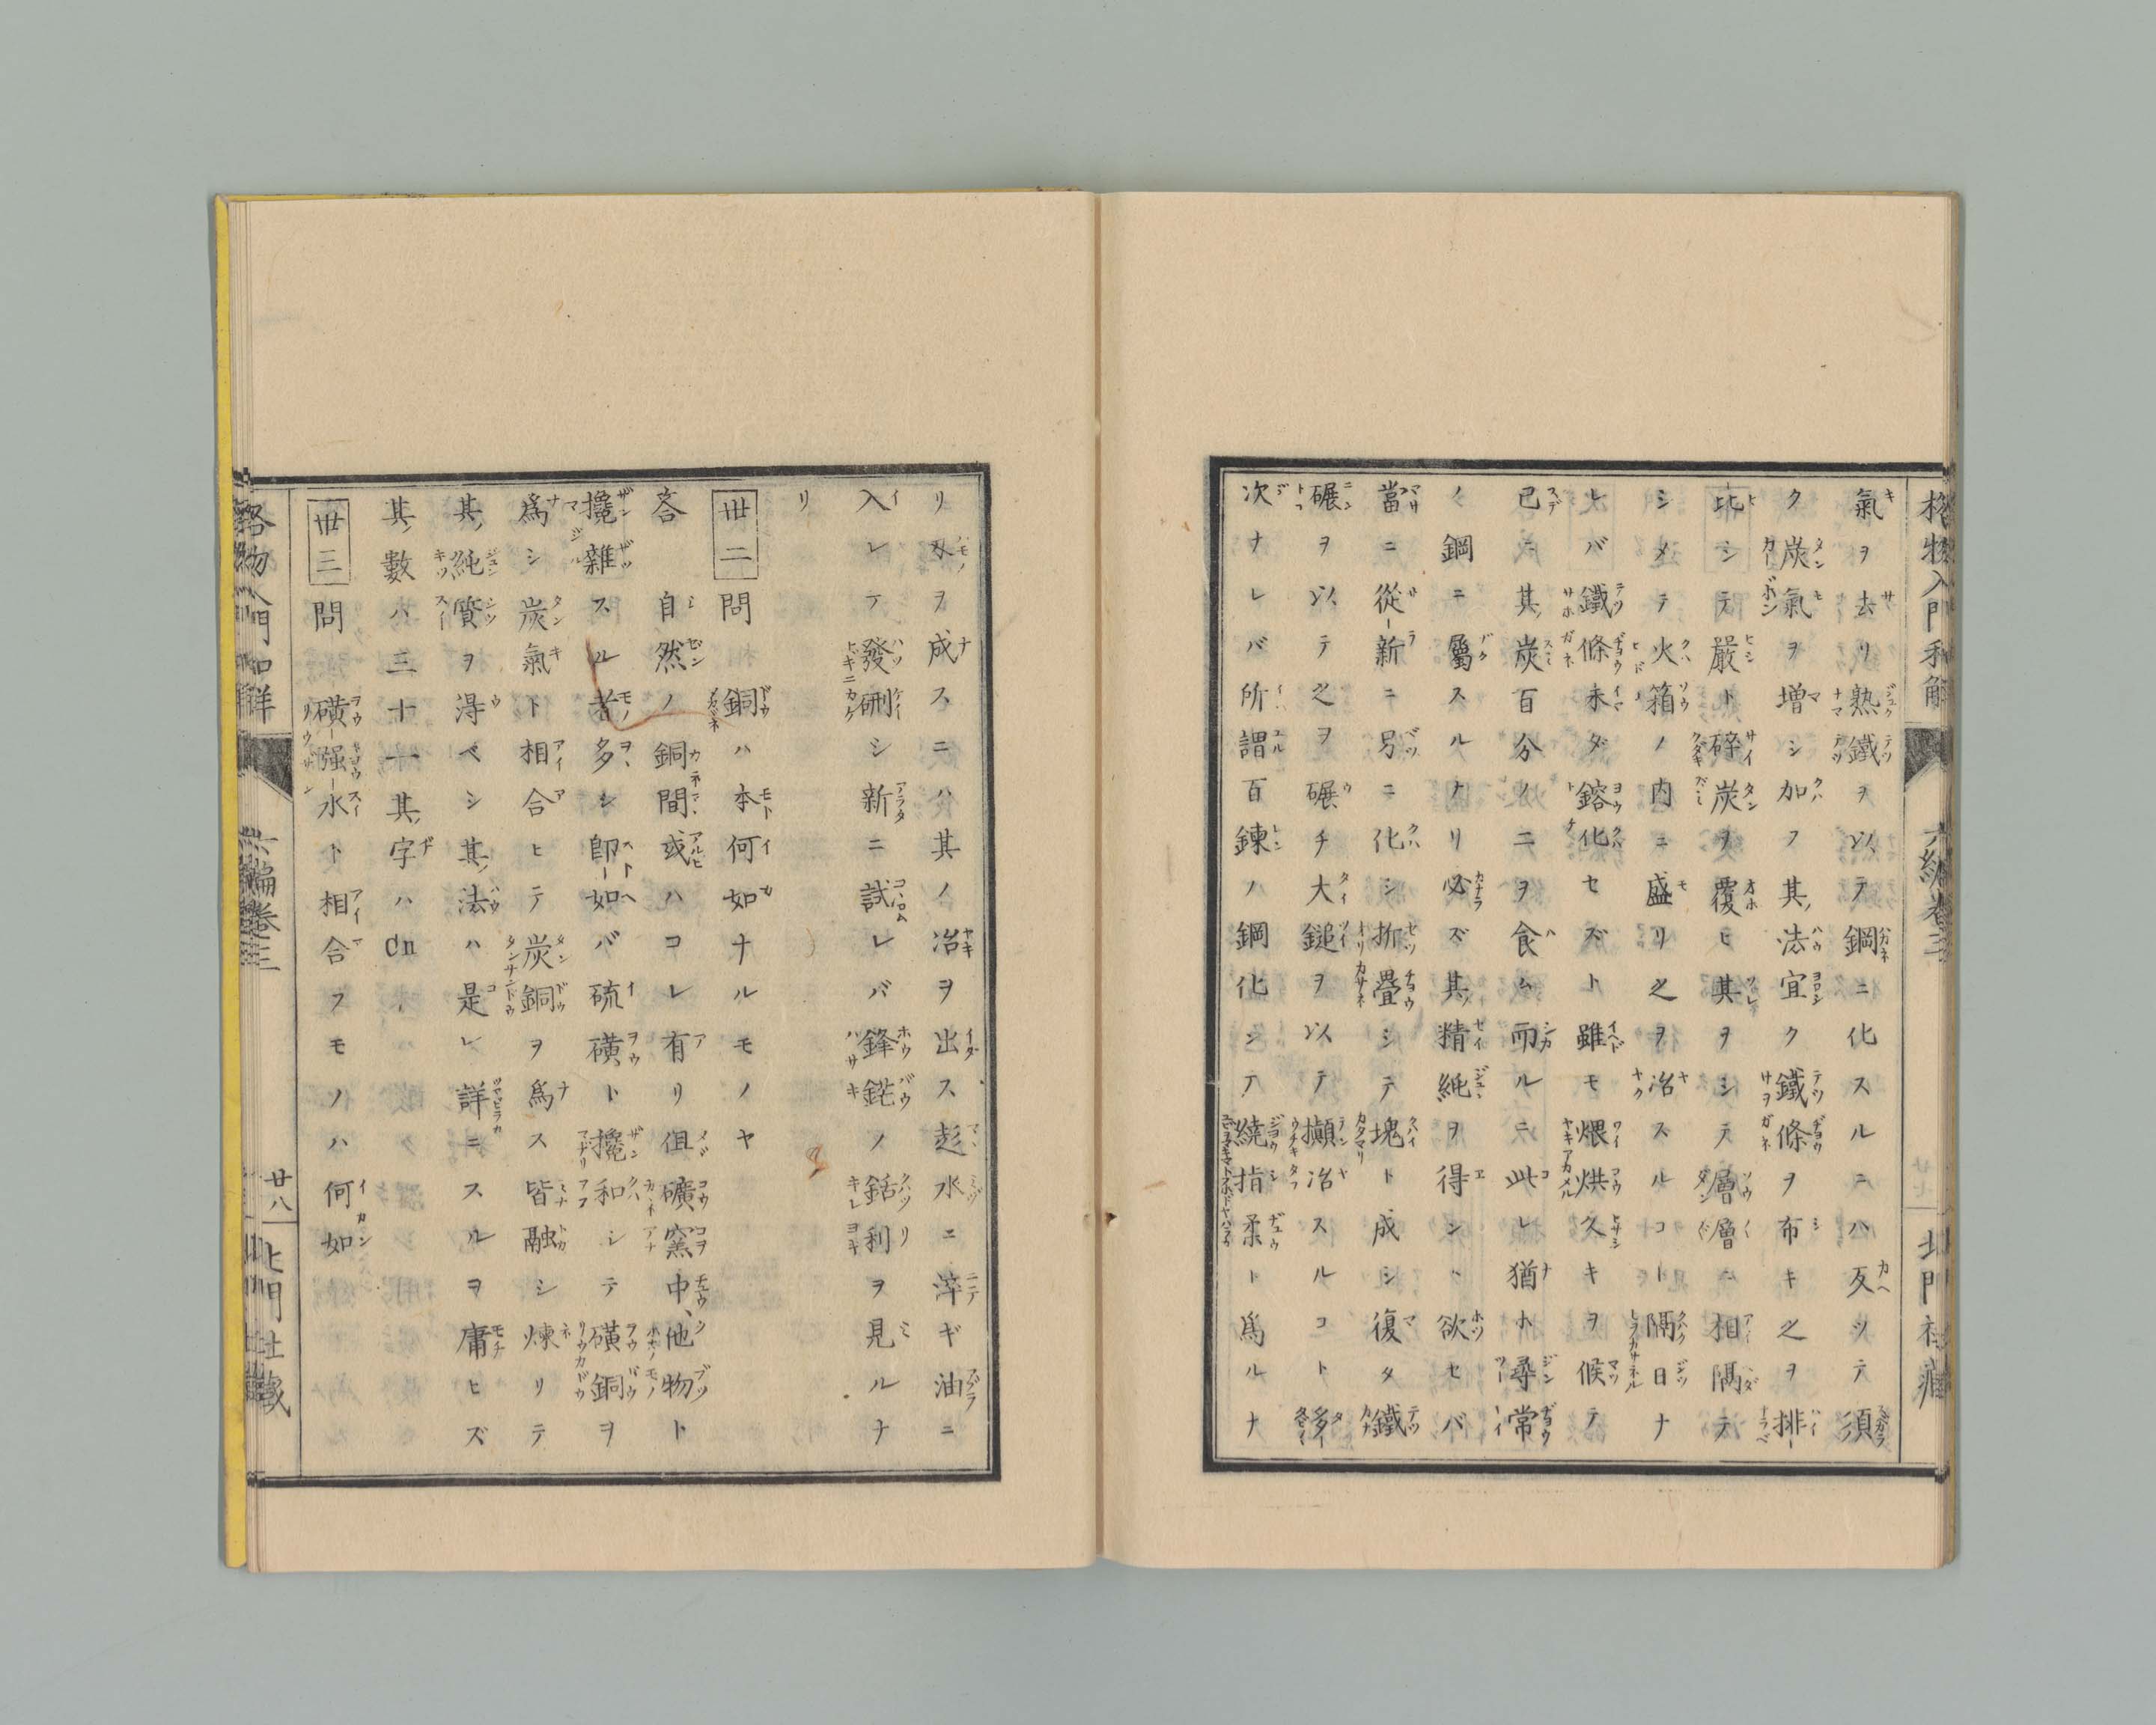 格物入門和解
六編卷三
北門社藏
氣ヲ去リ熟鐵ヲ以テ鋼ニ化スルニハ反ツテ須
ク炭氣ヲ增シ加フ其法宜ク鐵條ヲ布キ之ヲ排
比シテ嚴ト碎炭ヲ覆ヒ其ヲシテ層層ニ相隔テ
シメテ火箱ノ内ニ盛リ之ヲ冶スルコト隔日ナ
レバ鐵條未ダ鎔化セズト雖モ煨烘久キヲ候テ
已ニ其炭百分ノ二ヲ食ム而ルニ此レ猶ト尋常
ノ鋼ニ屬スルナリ必ズ其精純ヲ得ント欲セバ
當ニ從新ニ另ニ化シ折疊シテ塊ト成シ復タ鐵
碾ヲ以テ之ヲ碾チ大鎚ヲ以テ攧冶スルコト多
次ナレバ所謂百鍊ノ鋼化シテ繞指柔ト爲ルナ
リ刄ヲ成スニハ其ノ冶ヲ出ス趁水ニ淬ギ油ニ
入レテ發硎シ新ニ試レバ鋒鋩ノ銛利ヲ見ルナ
リ
卅二問 銅ハ本何如ナルモノヤ
答 自然ノ銅間或ハコレ有リ伹礦窯中他物ト
攙雜スル者多シ卽如バ硫磺ト攙和シテ磺銅ヲ
爲シ炭氣ト相合ヒテ炭銅ヲ爲ス皆融シ煉リテ
其純質ヲ淂ベシ其法ハ是レ詳ニスルヲ庸ヒズ
其數ハ三十一其字ハCn
卅三問 磺强水ト相合フモノハ何如
格物入門和解
六編卷三
廿八
北門社藏